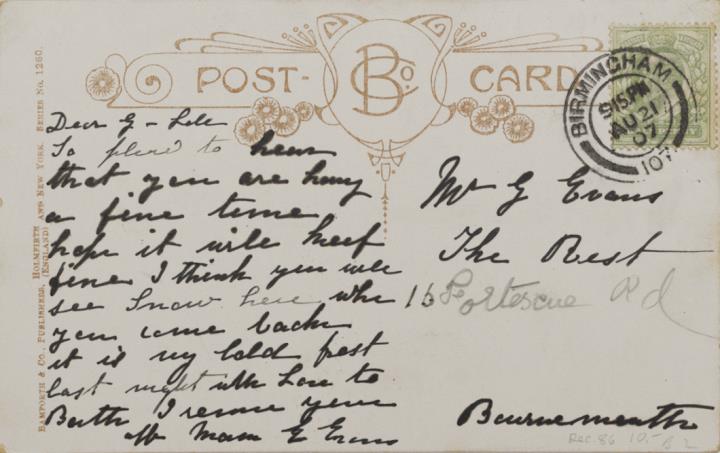 POST-CARD
B Co.
BIRMINGHAM
9 15 PM
AU 21
07
107
BAMFORTH & CO., PUBLISHERS, HOLMFIRTH
(ENGLAND) AND NEW YORK. SERIES No. 1250.
Dear G
So plesed to hear
that you are haveing
a fine time
hope it will keep
fine I think you will
see Snow here when
you come back
it is very Cold frost
last night with Love to
Both I remane your
aff Mam E Evans
Mr G Evans
The Rest
16 Fortescue Rd
Bournemouth
Rec. 86 10.- B 2